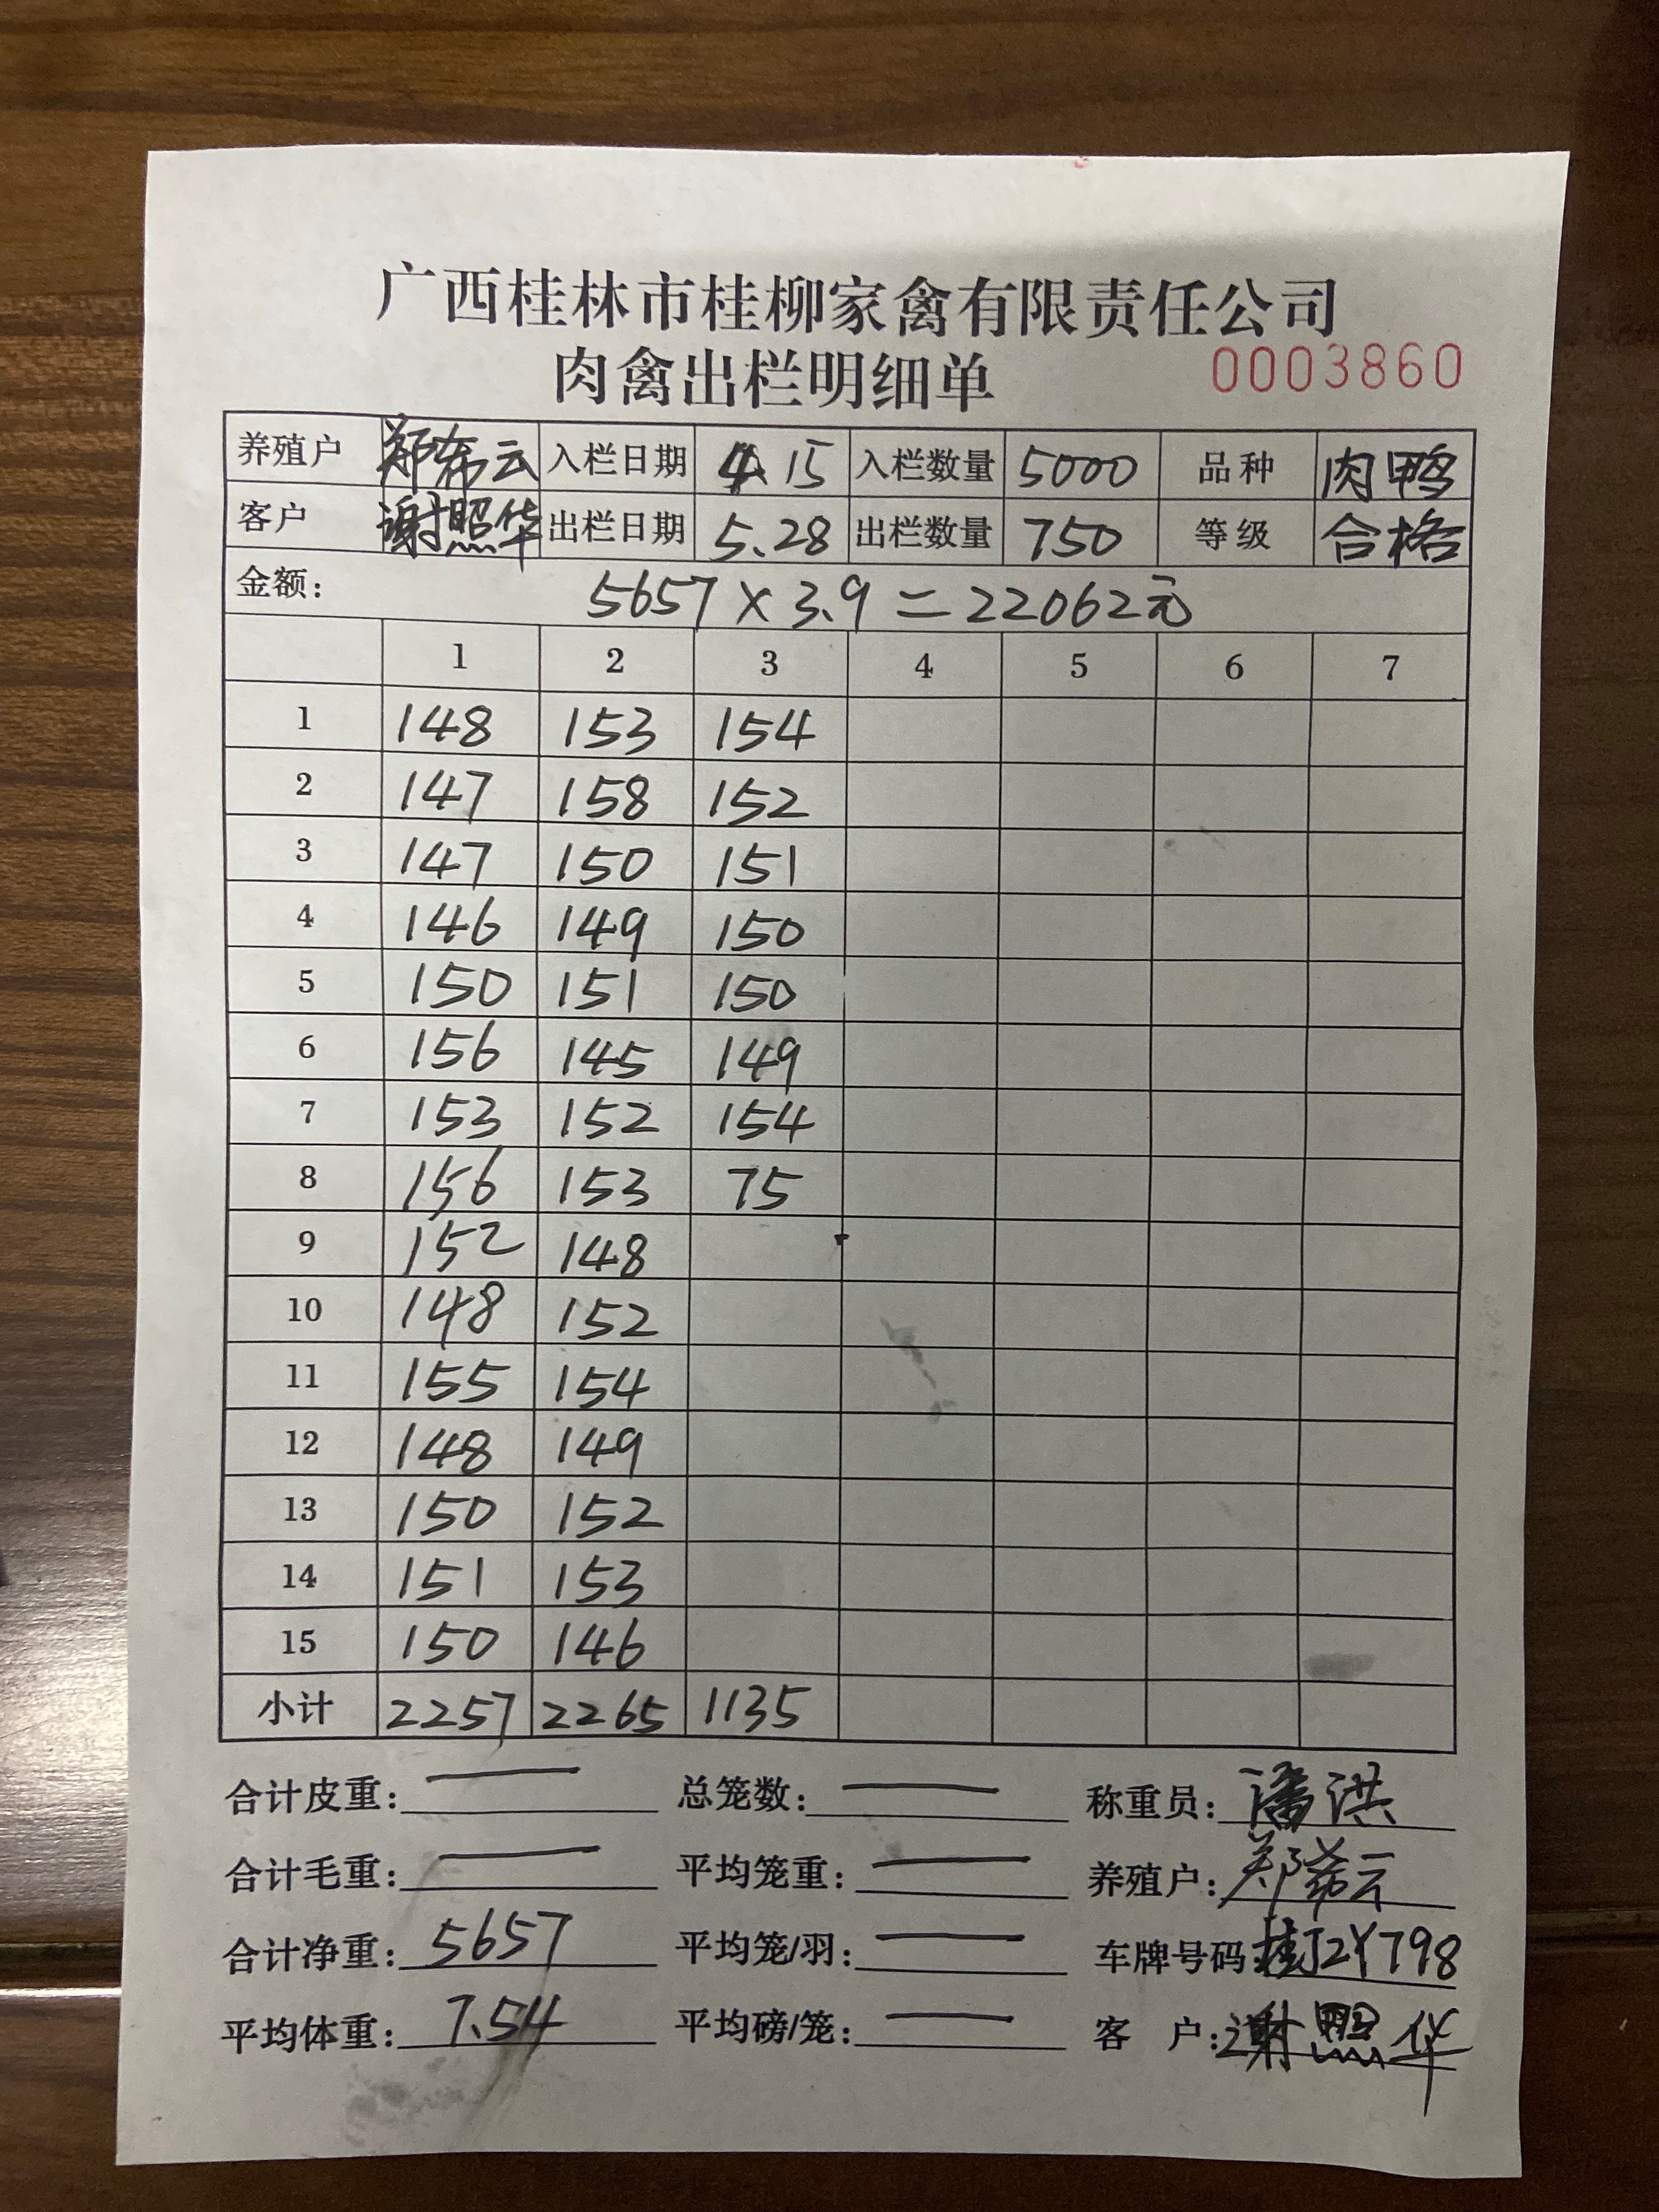 广西桂林市桂柳家禽有限责任公司
肉禽出栏明细单 0003860
养殖户 郑希云 入栏日期 4.15 入栏数量 5000 品种 肉鸭
客户 谢照华 出栏日期 5.28 出栏数量 750 等级 合格
金额: 5657×3.9=22062元
1 2 3 4 5 6 7
1 148 153 154
2 147 158 152
3 147 150 151
4 146 149 150
5 150 151 150
6 156 145 149
7 153 152 154
8 156 153 75
9 152 148
10 148 152
11 155 154
12 148 149
13 150 152
14 151 153
15 150 146
小计 2257 2265 1135
合计皮重: — 总笼数: — 称重员: 潘洪
合计毛重: — 平均笼重: — 养殖户: 郑希云
合计净重: 5657 平均笼/羽: — 车牌号码 桂J2Y798
平均体重: 7.54 平均磅/笼: — 客 户: 谢照华